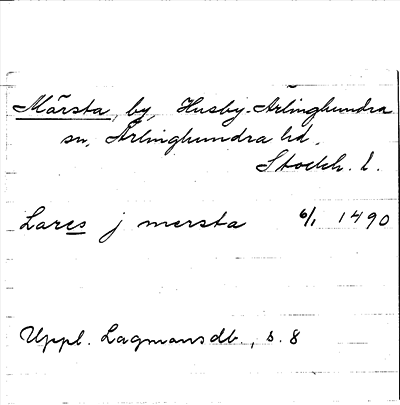 Märsta, by, Husby-Ärlinghundra
sn, Ärlinghundra hd.
Stockh. l.
Lares j mersta 6/1 1490
Uppl. Lagmansdb., s. 8